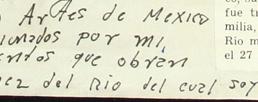 Artes de Mexico
ionados por mi,
entos que obran
ez del Rio del cual soy
fue tr
milia,
Rio m
el 27